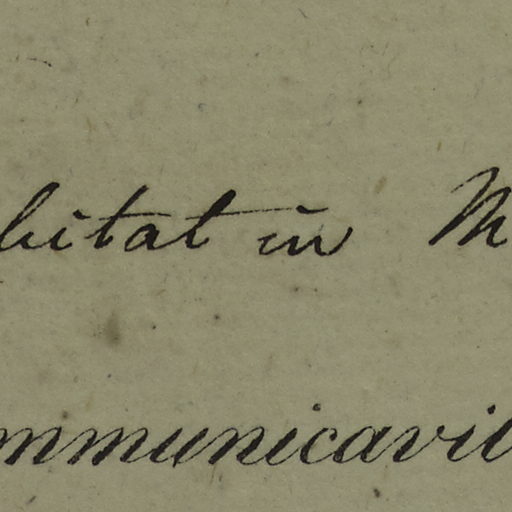 bitat in M
ommunicavit